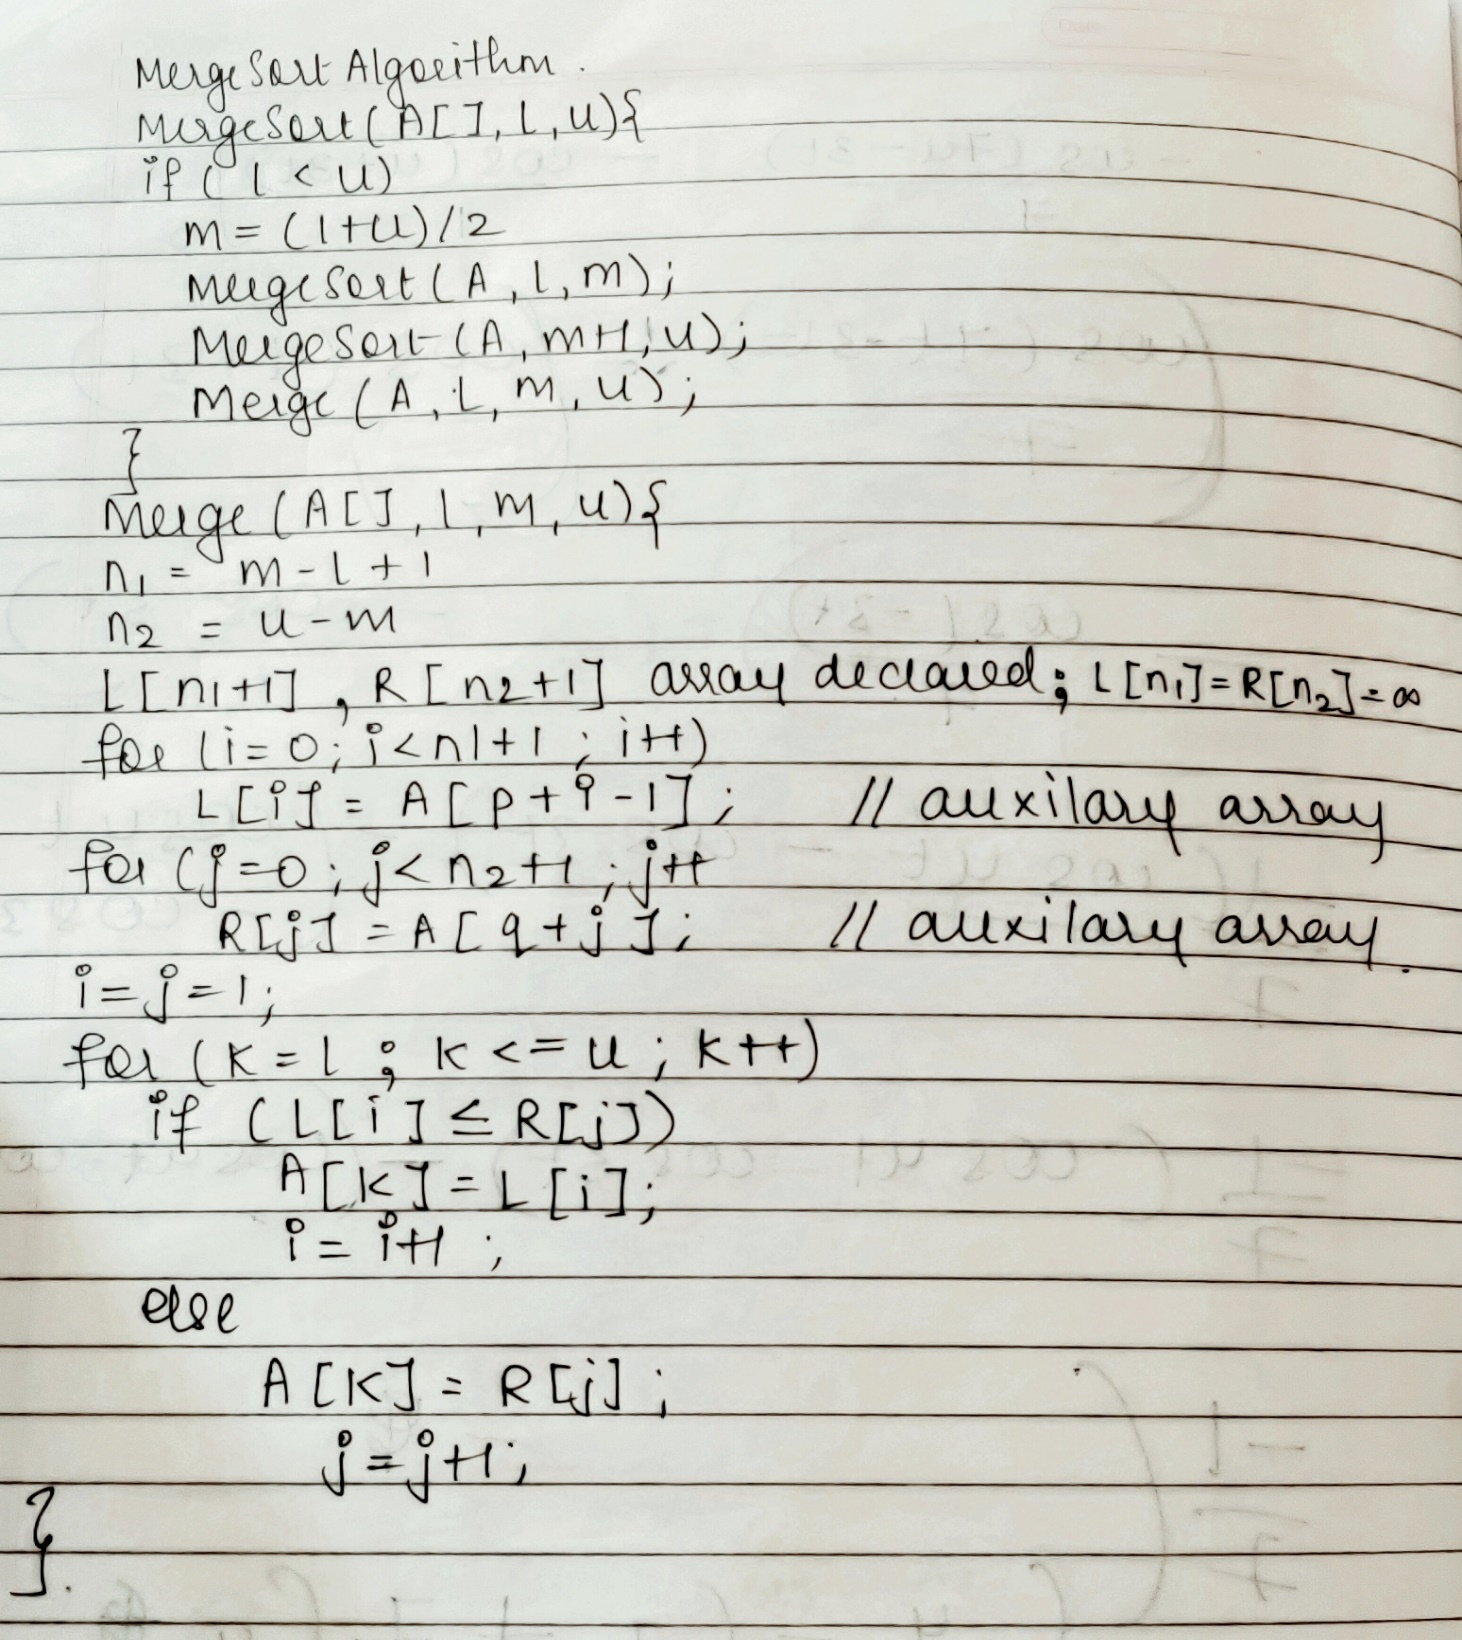 MergeSort Algorithm.
MergeSort(A[], l, u){
if (l < u)
m = (l+u)/2
MergeSort(A, l, m);
MergeSort(A, m+1, u);
Merge(A, l, m, u);
}
Merge(A[], l, m, u){
n1 = m - l + 1
n2 = u - m
L[n1+1], R[n2+1] array declared; L[n1]=R[n2]=∞
for (i=0; i<n1+1; i++)
L[i] = A[p+i-1]; // auxilary array
for (j=0; j<n2+1; j++
R[j] = A[q+j]; // auxilary array.
i=j=1;
for (K=l; K<=u; K++)
if (L[i] ≤ R[j])
A[K] = L[i];
i = i+1;
else
A[K] = R[j];
j=j+1;
}.